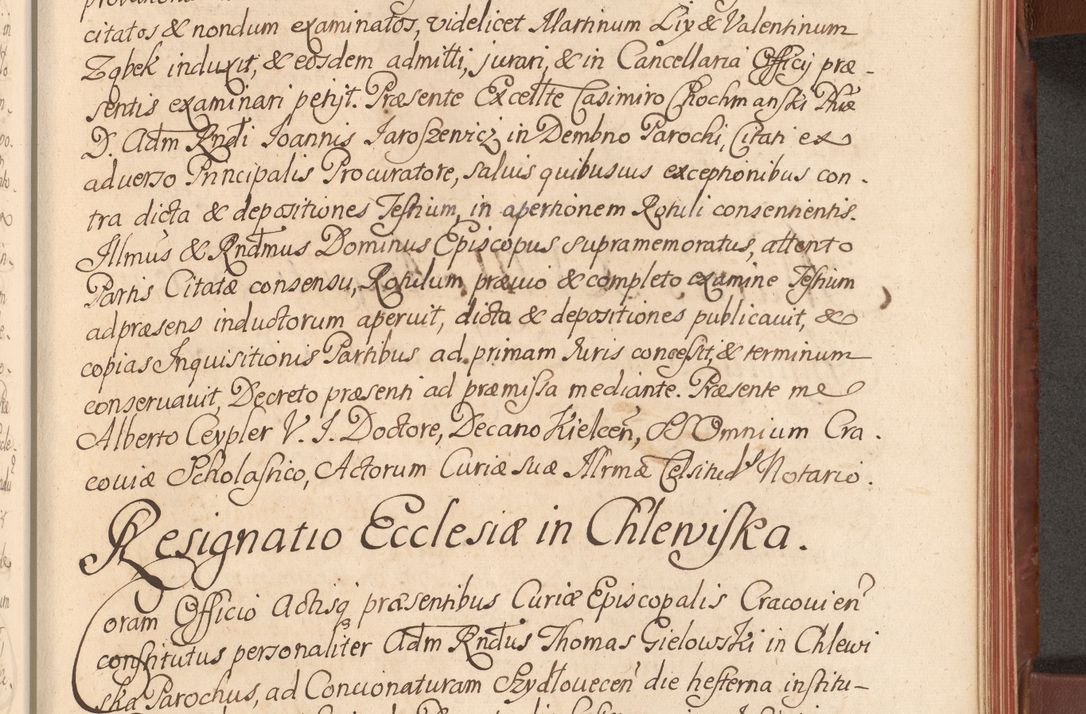 citatos & nondum examinatos, videlicet Martinum Lix & Valentinum
Ząbek induxit, & eosdem admitti, jurari, & in Cancellaria Officij præ-
sentis examinari petijt. Præsente Excellte Casimiro Chochmanski
D. Adm Rndi Joannis Jaroszewicz in Dembno Parochi, Citati ex
adverso Principalis Procuratore, salvis quibusvis exceptionibus con-
tra dicta & depositiones Testium, in apertionem Rotuli consentientis.
Illmus & Rndmus Dominus Episcopus supramemoratus, attento
Partis Citatæ consensu, Rotulum, prævio & completo examine Testium
ad præsens inductorum aperuit, dicta & depositiones publicavit, &
copias Inquisitionis Partibus ad primam Juris congessit, & terminum
conservavit, Decreto præsenti ad præmissa mediante. Præsente me
Alberto Ceypler V. J. Doctore, Decano Kielcen, SS Omnium Cra-
coviæ Scholastico, Actorum Curiæ suæ Illrmæ Celsitud s Notario.
Resignatio Ecclesiæ in Chlewiska.
Coram Officio Actisq præsentibus Curiæ Episcopalis Cracovien
constitutus personaliter Adm Rndus Thomas Gielowski in Chlewi
ska Parochus, ad Concionaturam Szydlovecen die hesterna institu-